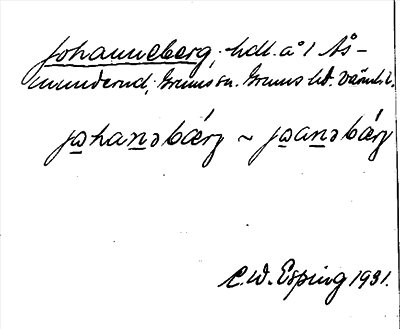 Johanneberg, hdl. å 1 Ås-
munderud, Grums sn. Grums hd. Värml. l.
johanəbærj ~ joanəbærj
C.W. Esping 1931.